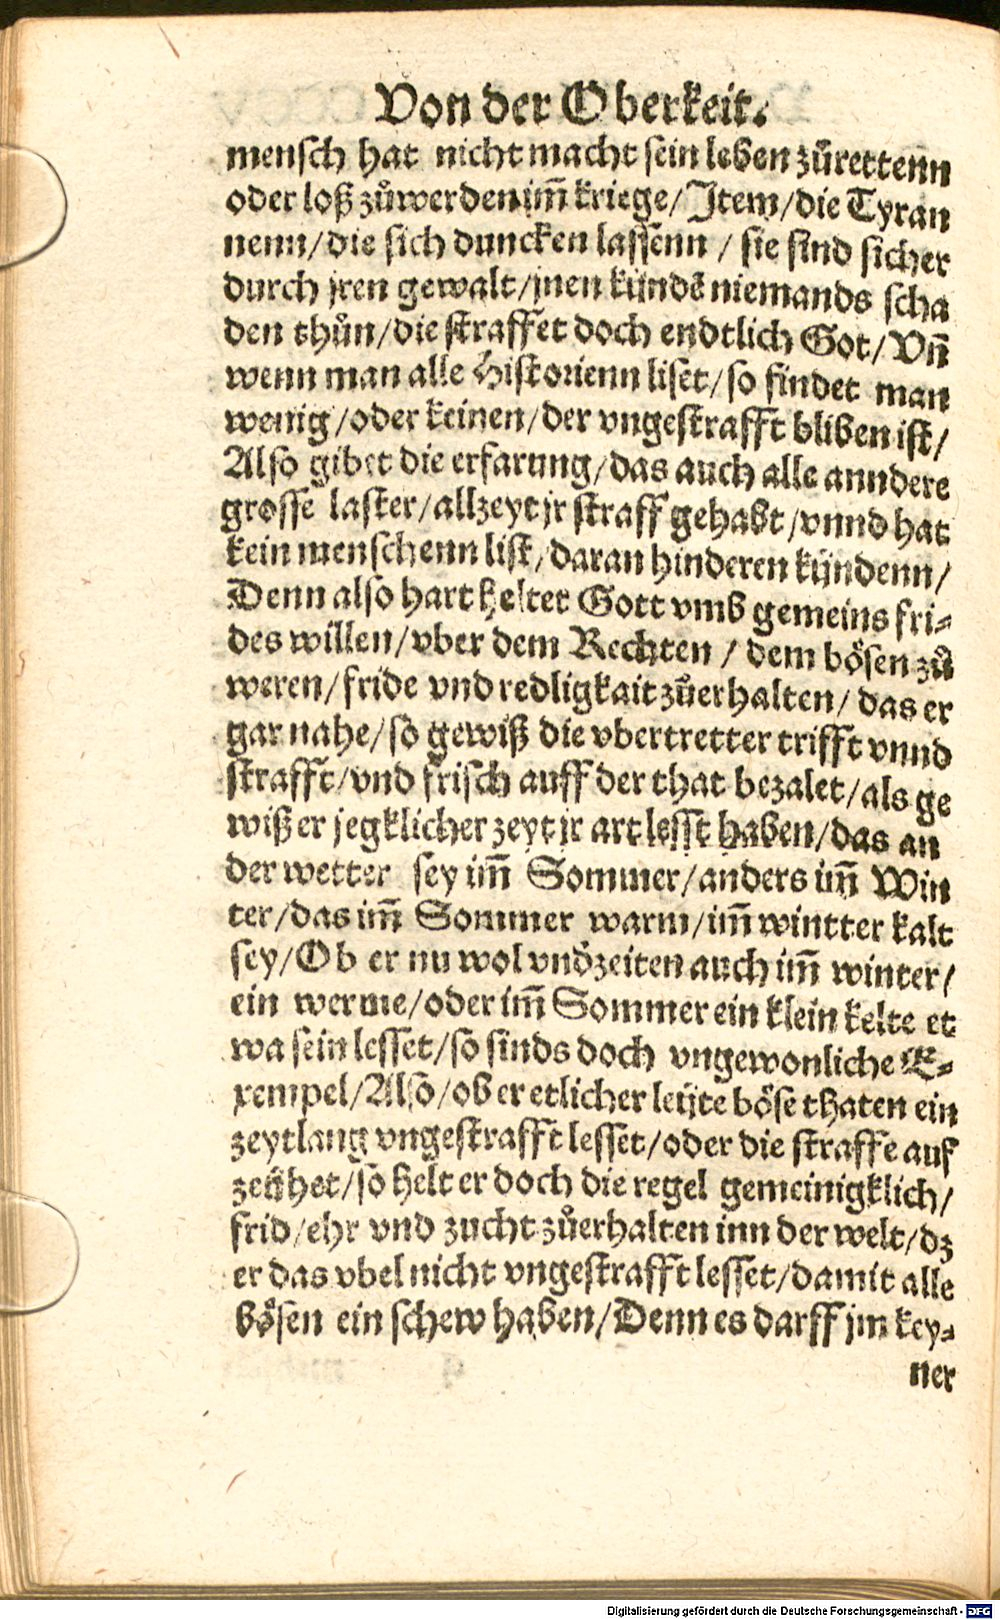 Von der Oberkeit.
mensch hat nicht macht sein leben zůrettenn
oder loß zůwerden im̃ kriege/ Item/ die Tyran
nenn/ die sich duncken lassenn / sie sind sicher
durch jren gewalt/ jnen kündẽ niemands scha
den thůn/ die straffet doch endtlich Got/ Vñ
wenn man alle Historienn liset/ so findet man
wenig/ oder keinen/ der vngestrafft bliben ist/
Also gibet die erfarung/ das auch alle anndere
grosse laster/ allzeyt jr straff gehabt/ vnnd hat
kein menschenn list/ daran hinderen kündenn/
Denn also hart heltet Gott vmb gemeins fri-
des willen/ vber dem Rechten / dem bösen zů
weren/ fride vnd redligkait zůerhalten/ das er
gar nahe/ so gewiß die vbertretter trifft vnnd
strafft/ vnd frisch auff der that bezalet/ als ge
wiß er jegklicher zeyt jr art lesst haben/ das an
der wetter sey im̃ Sommer/ anders im̃ Win
ter/ das im̃ Sommer warm/ im̃ wintter kalt
sey/ Ob er nu wol vndzeiten auch im̃ winter/
ein werme/ oder im̃ Sommer ein klein kelte et
wa sein lesset/ so sinds doch vngewonliche E-
xempel/ Also/ ob er etlicher leüte böse thaten ein
zeytlang vngestrafft lesset/ oder die straffe auf
zeühet/ so helt er doch die regel gemeinigklich/
frid/ ehr vnd zucht zůerhalten inn der welt/ dz
er das vbel nicht vngestrafft lesset/ damit alle
bösen ein schew haben/ Denn es darff jm key-
ner
Digitalisierung gefördert durch die Deutsche Forschungsgemeinschaft - DFG